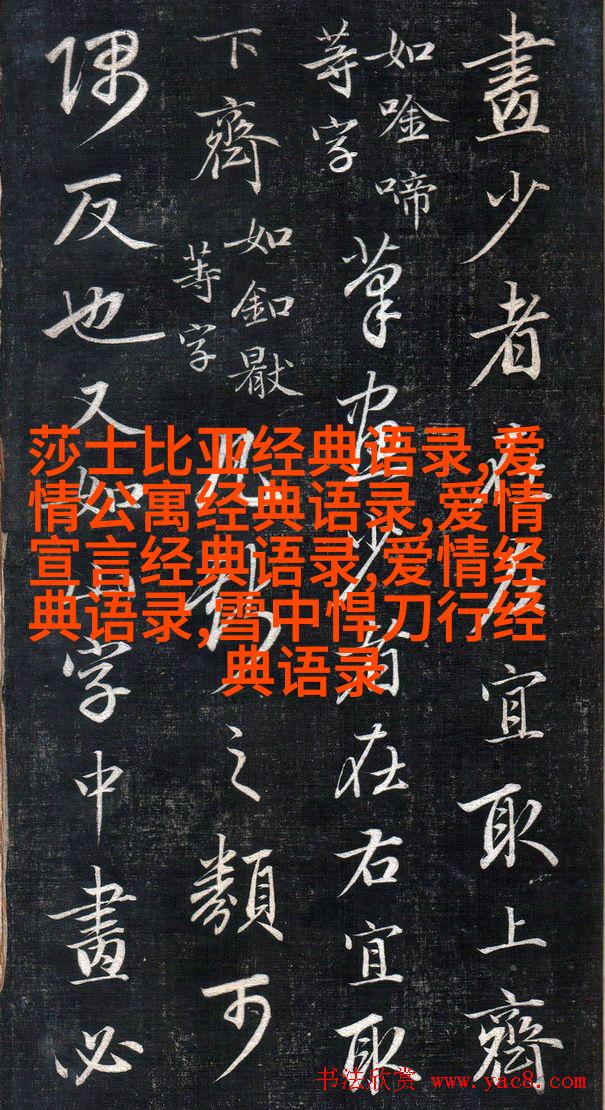 畫少者在左宜取上齊
如唫啼
等字
筆畫少者在右宜取
下齊
如釦
等字
凡之類可
隅反也又如字中畫必
莎士比亚经典语录,爱
情公寓经典语录,爱情
宣言经典语录,爱情经
典语录,雪中悍刀行经
典语录
书法欣赏 www.yac8.com